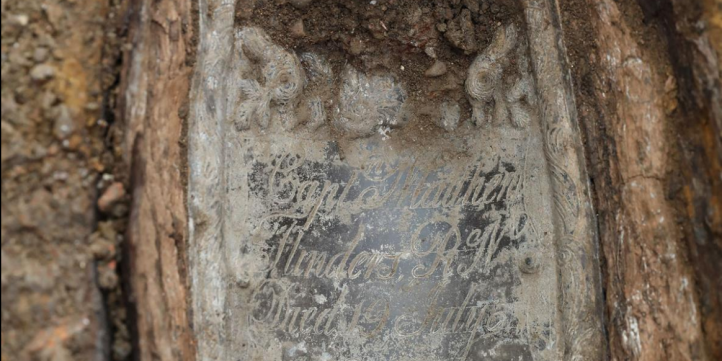 Capt. Matthew
Flinders R.N.
Died 19 July